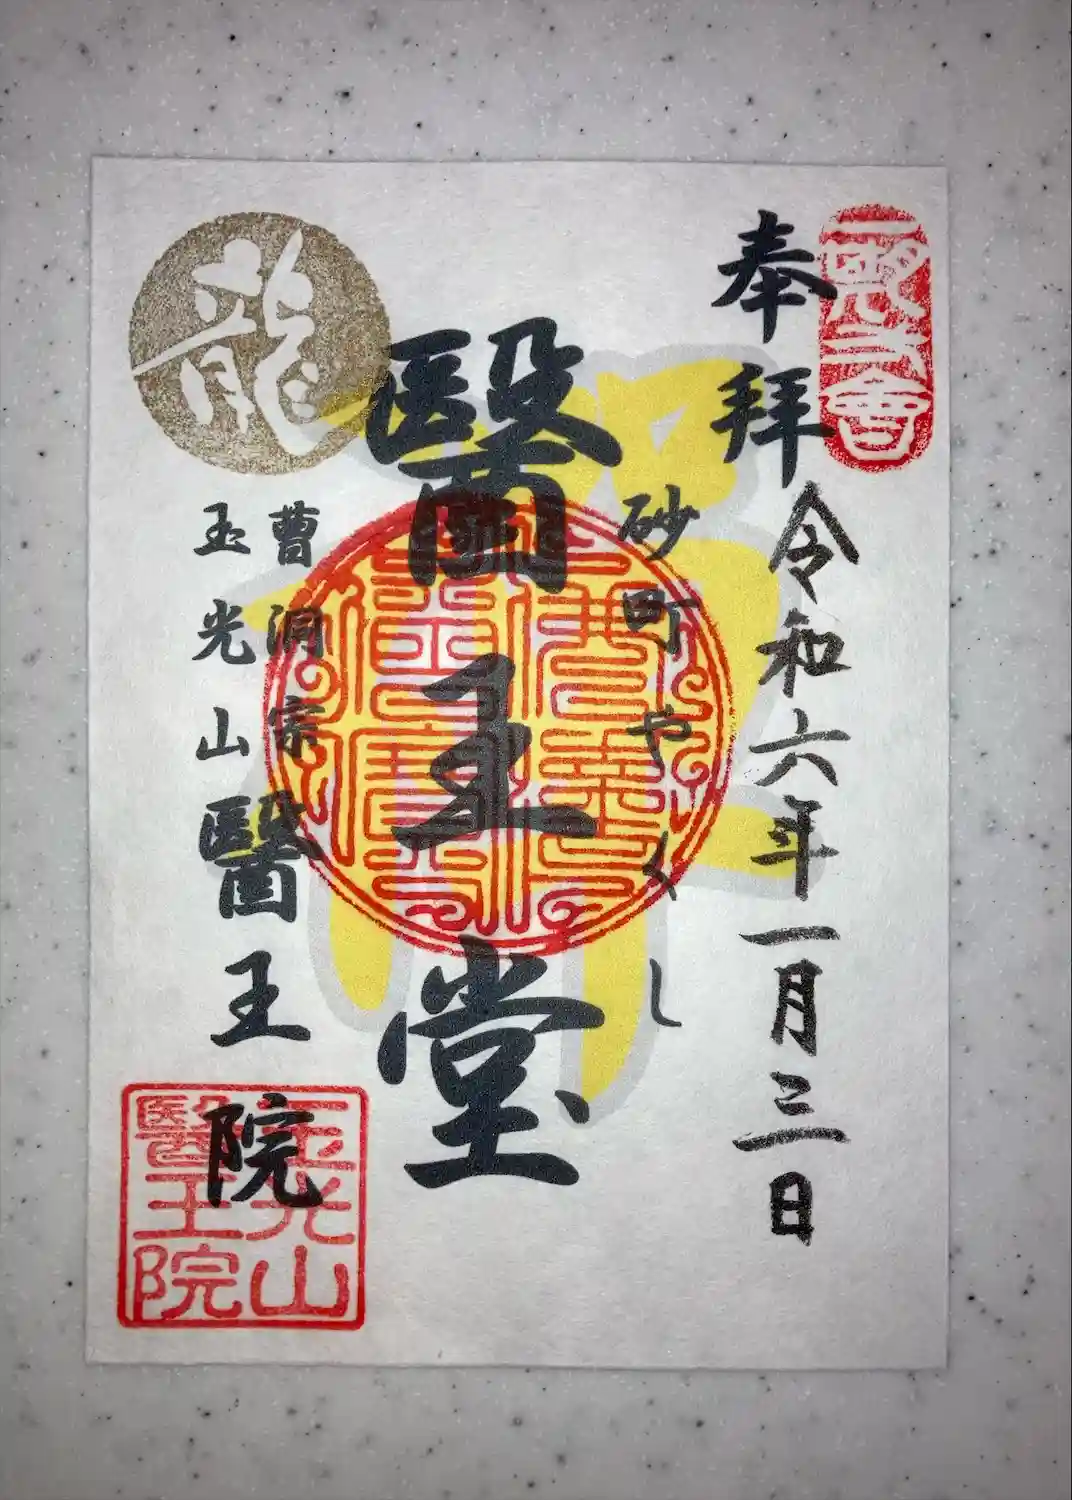 奉拝
令和六年一月三日
砂町やくし
醫王堂
佛法僧寳
曹洞宗
玉光山醫王院
龍
玉光山
醫王院